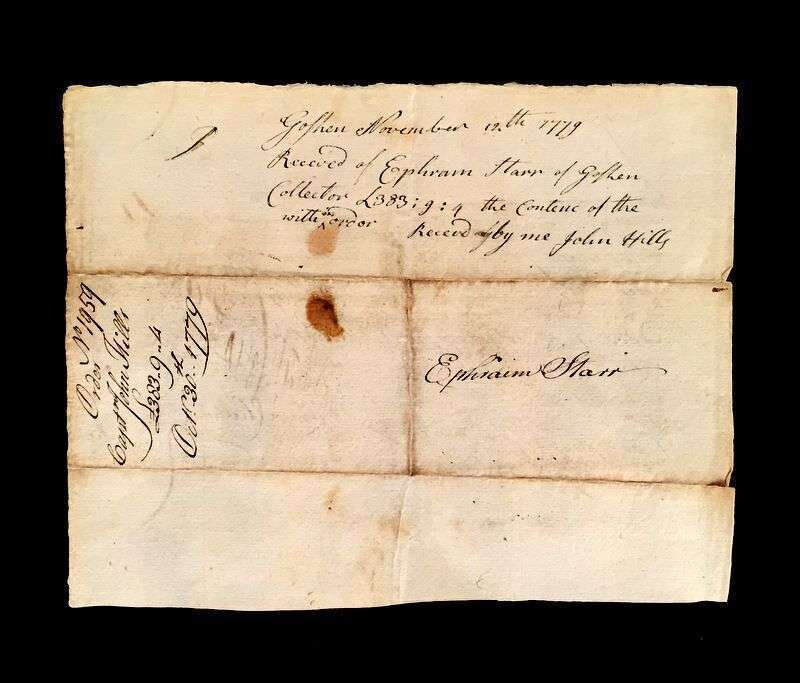 Goshen November 12th 1779
Receevd of Ephraim Starr of Goshen
Collector £383 : 9 : 4 the Contenc of the
with in order Receevd by me John Hills
Order No 1959
Capt John Hills
£383-9-4
Octr 30th 1779
Ephraim Starr